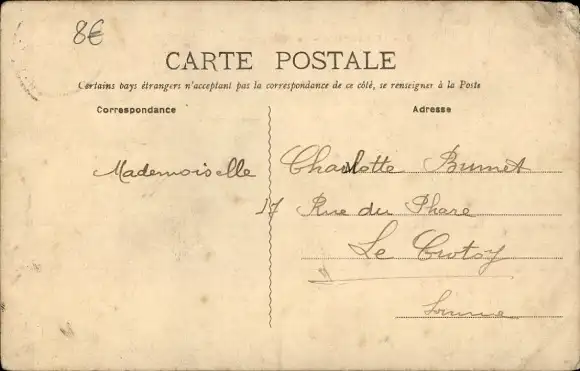 8€
CARTE POSTALE
Certains pays étrangers n'acceptent pas la correspondance de ce côté, se renseigner à la Poste
Correspondance Adresse
Mademoiselle Charlotte Brunet
17 Rue du Phare
Le Crotoy
Somme